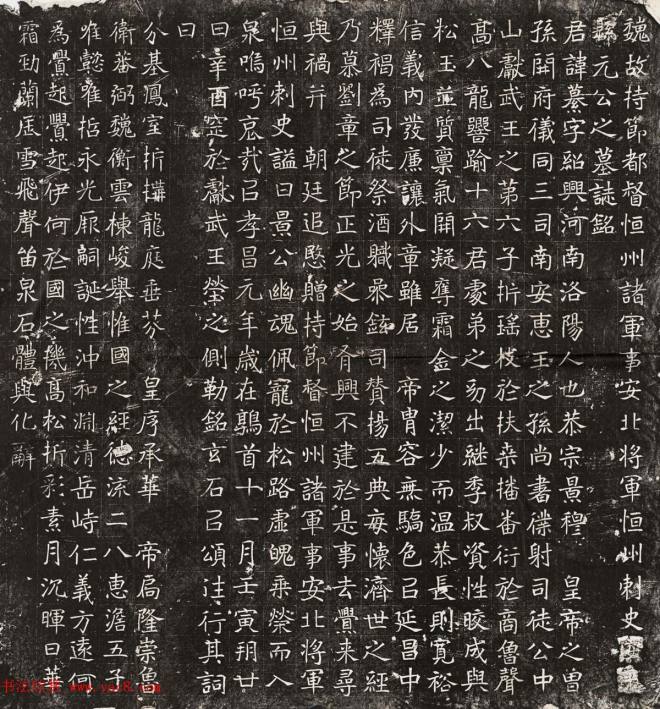 魏故持節都督恒州諸軍事安北將軍恒州刺史
縣元公之墓誌銘
君諱纂字紹興河南洛陽人也恭宗景穆 皇帝之曾
孫開府儀同三司南安惠王之孫尚書僕射司徒公中
山獻武王之第六子折瑤枝於扶桒播番衍於商魯聲
髙八龍譽踰十六君處弟之㓜出継季叔資性皎成與
松玉並質稟氣開凝奪霜金之潔少而温恭長則寬裕
信義內發廉讓外章雖居 帝胄容無驕色㠯延昌中
釋褐為司徒祭酒職眾鉉司賛揚五典每懷濟世之經
乃慕劉章之節正光之始脊興不建於是事去舋來尋
與禍并 朝廷追愍贈持節督恒州諸軍事安北將軍
恒州刺史謚曰景公幽魂佩寵於松路虛魄乘榮而入
泉嗚呼哀㦲㠯孝昌元年歲在鶉首十一月壬寅朔廿
日辛酉窆於獻武王塋之側勒銘玄石㠯頌徃行其詞
曰
分基鳳室折龍庭垂芬 皇序承華 帝扃隆崇魯
衛蕃弼魏衡雲棟峻舉惟國之經德流二八惠澹五子
唯懿唯哲永光厥嗣誕性沖和淵清岳峙仁義方遠何
為舋起舋起伊何於國之機髙松折彩素月沉暉日華
霜勁蘭屋雪飛聲畄泉石體與化辭
书法欣赏 www.yac8.com